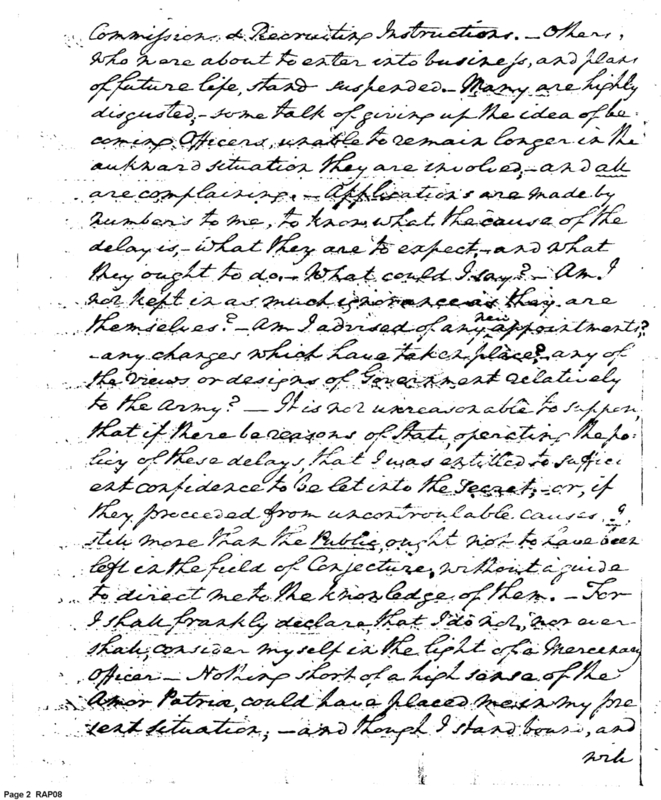 Commissions & Recruiting Instructions. — Others,
who were about to enter into business, and plans
of future life, stand suspended. — Many are highly
disgusted, — some talk of giving up the idea of be-
coming Officers, unable to remain longer in the
aukward situation they are involved, — and all
are complaining. — Applications are made by
numbers to me, to know what the cause of the
delay is, — what they are to expect, — and what
they ought to do. — What could I say? — Am I
not kept in as much ignorance as they are
themselves? — Am I advised of any new appointments?
— any changes which have taken place? any of
the views or designs of Government relatively
to the Army? — It is not unreasonable to suppose,
that if there be reasons of State, operating the po-
licy of these delays, that I was entitled to suffici
ent confidence to be let into the secret; — or, if
they proceeded from uncontroulable causes I,
still more than the Public, ought not to have been
left in the field of Conjecture, without a guide
to direct me to the knowledge of them. — For
I shall frankly declare that I do not, nor ever
shall, consider myself in the light of a Mercenary
Officer — Nothing short of a high sense of the
Amor Patriæ, could have placed me in my pre
sent situation; — and though I stand bound, and
will
Page 2 RAP08